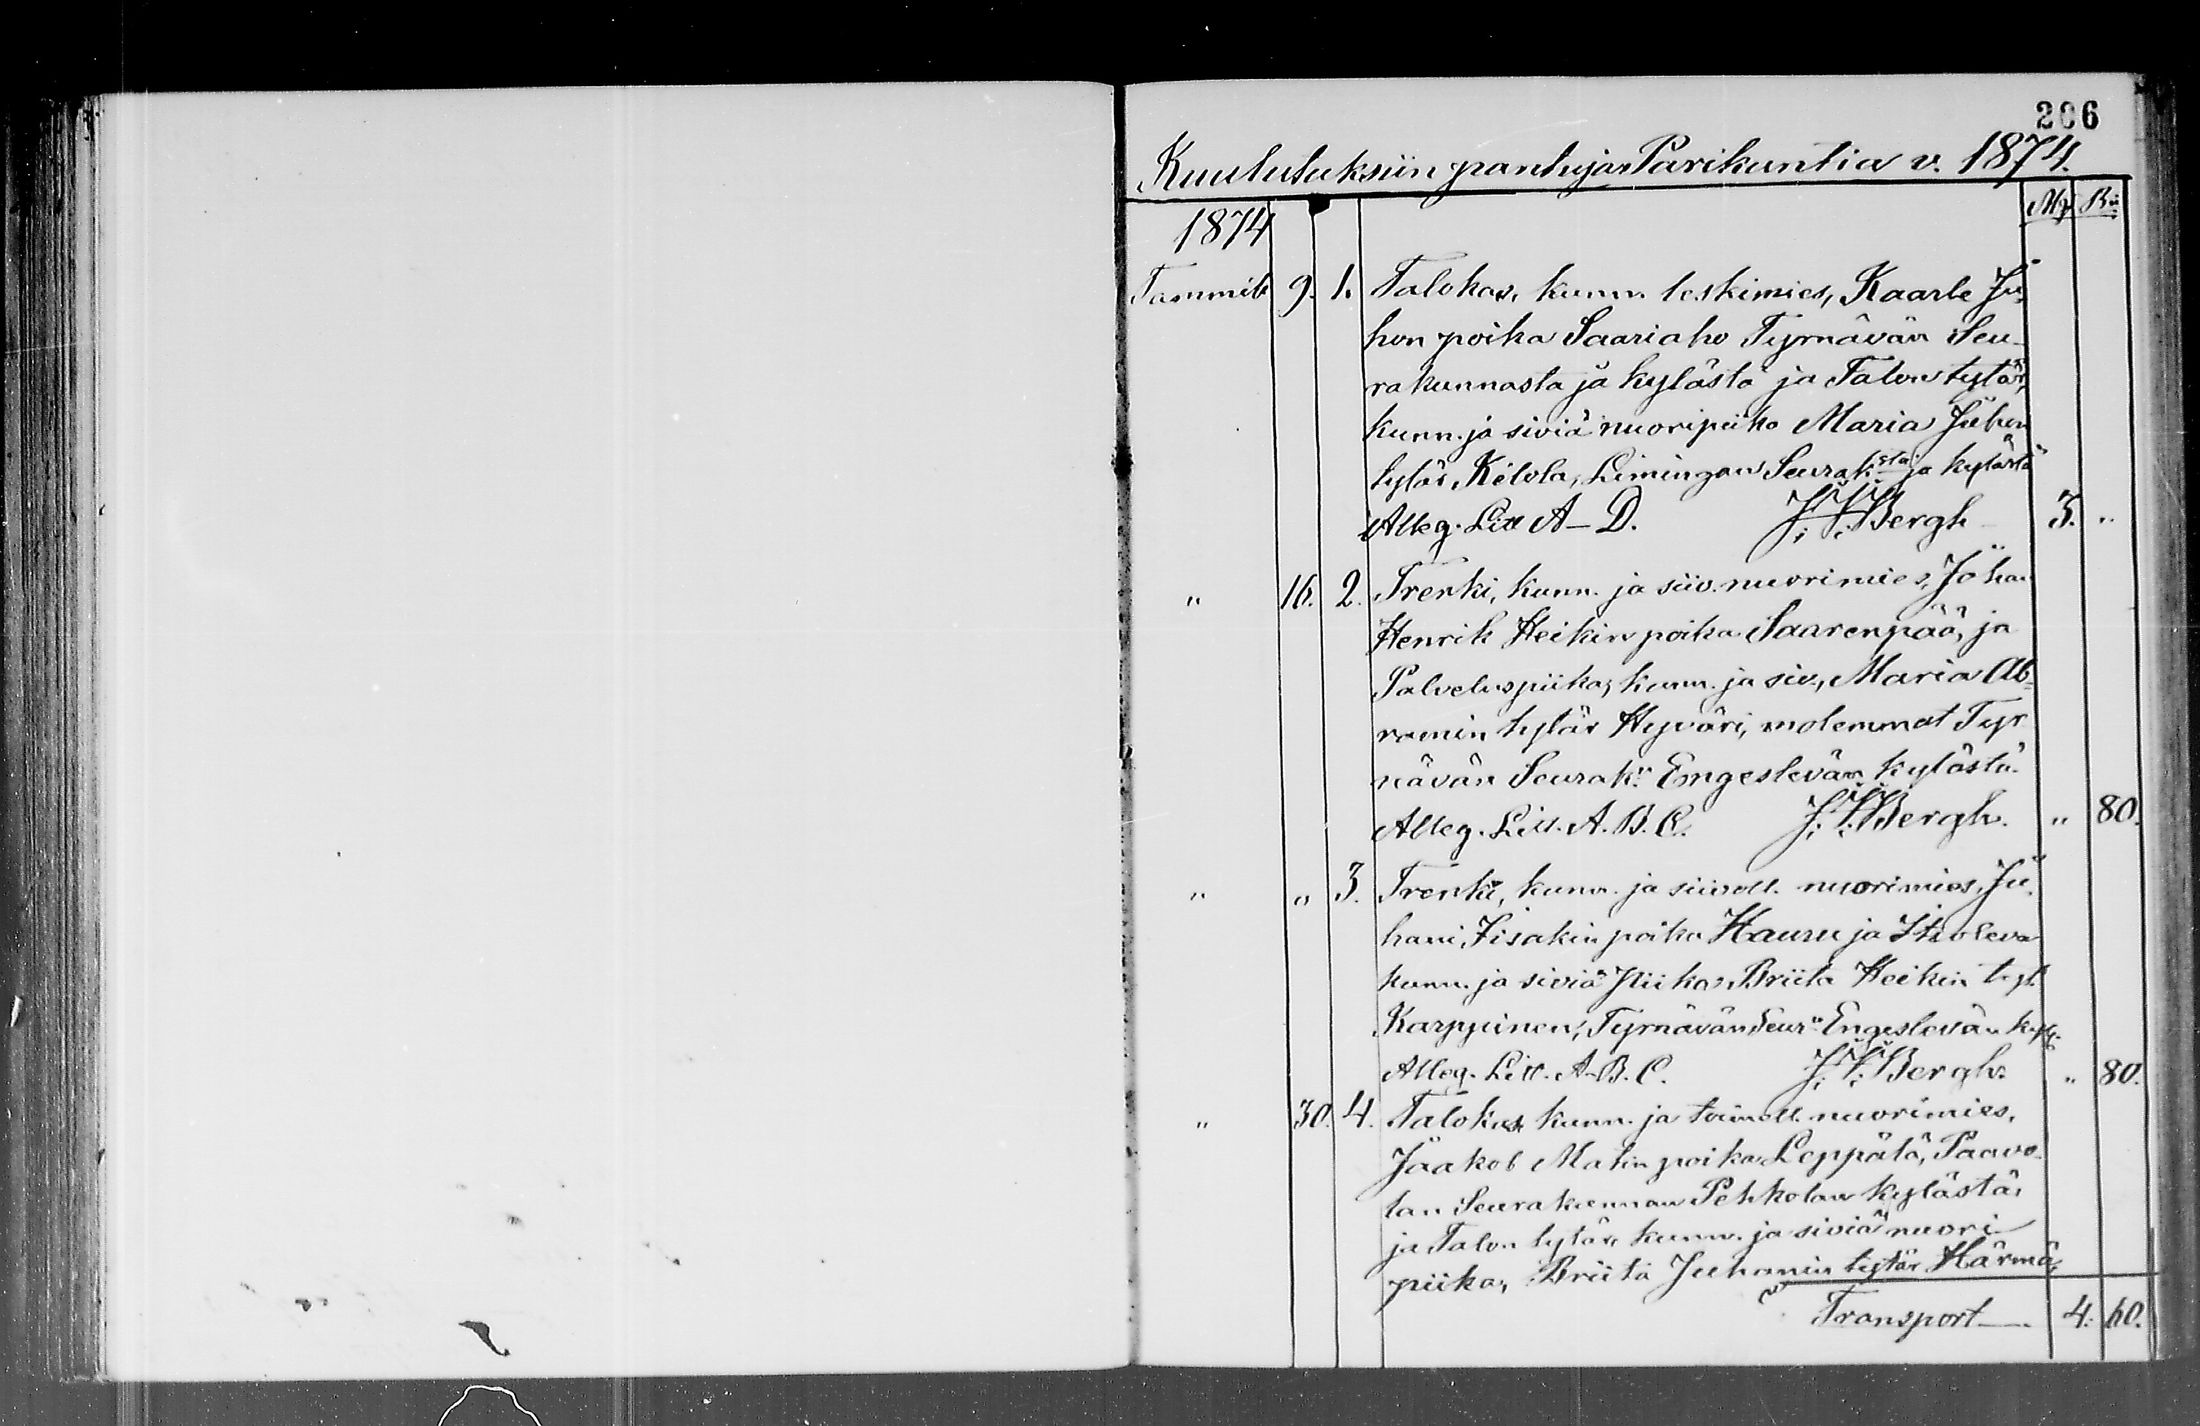 206
Kuulutuksiin pantuja Parikuntia v. 1874.
1874 Mk Pii
Tammik 9. 1. Talokas, kunn. leskimies, Kaarle Ju-
hon poika Saariaho Tyrnävän Seu-
rakunnasta ja kylästä ja Talon tytär,
kunn. ja siviä nuoripiika Maria Juhon
tytär Kilola, Limingan Seuraksta ja kylästä
Alleg. Litt A-D. J. F. Bergh 3. "
" 16. 2. Trenki, kunn. ja siiv. nuorimies, Johan
Henrik Heikin poika Saarenpää, ja
Palveluspiika, kunn. ja siv., Maria Ab-
ramin tytär Hyväri, molemmat Tyr
nävän Seurak:n Engeslevän kylästä.
Alleg. Litt. A. B. C. J. F. Bergh. " 80.
" " 3. Trenki, kunn. ja siivoll. nuorimies, Ju-
hani Iisakin poika Hauru ja Itsoleva
kunn. ja siviä Piika Briita Heikin tyt.
Karppinen, Tyrnävän Seur:n Engeslevän kyl.
Alleg. Litt. A. B. C. J. F. Bergh. " 80.
" 30. 4. Talokas kunn. ja toimell. nuorimies,
Jaakob Matin poika Leppälä, Paavo-
lan Seurakunnan Pehkolan kylästä,
ja Talon tytär, kunn. ja siviä nuori
piika, Briita Juhanin tytär Härmä,
Transport 4. 60.